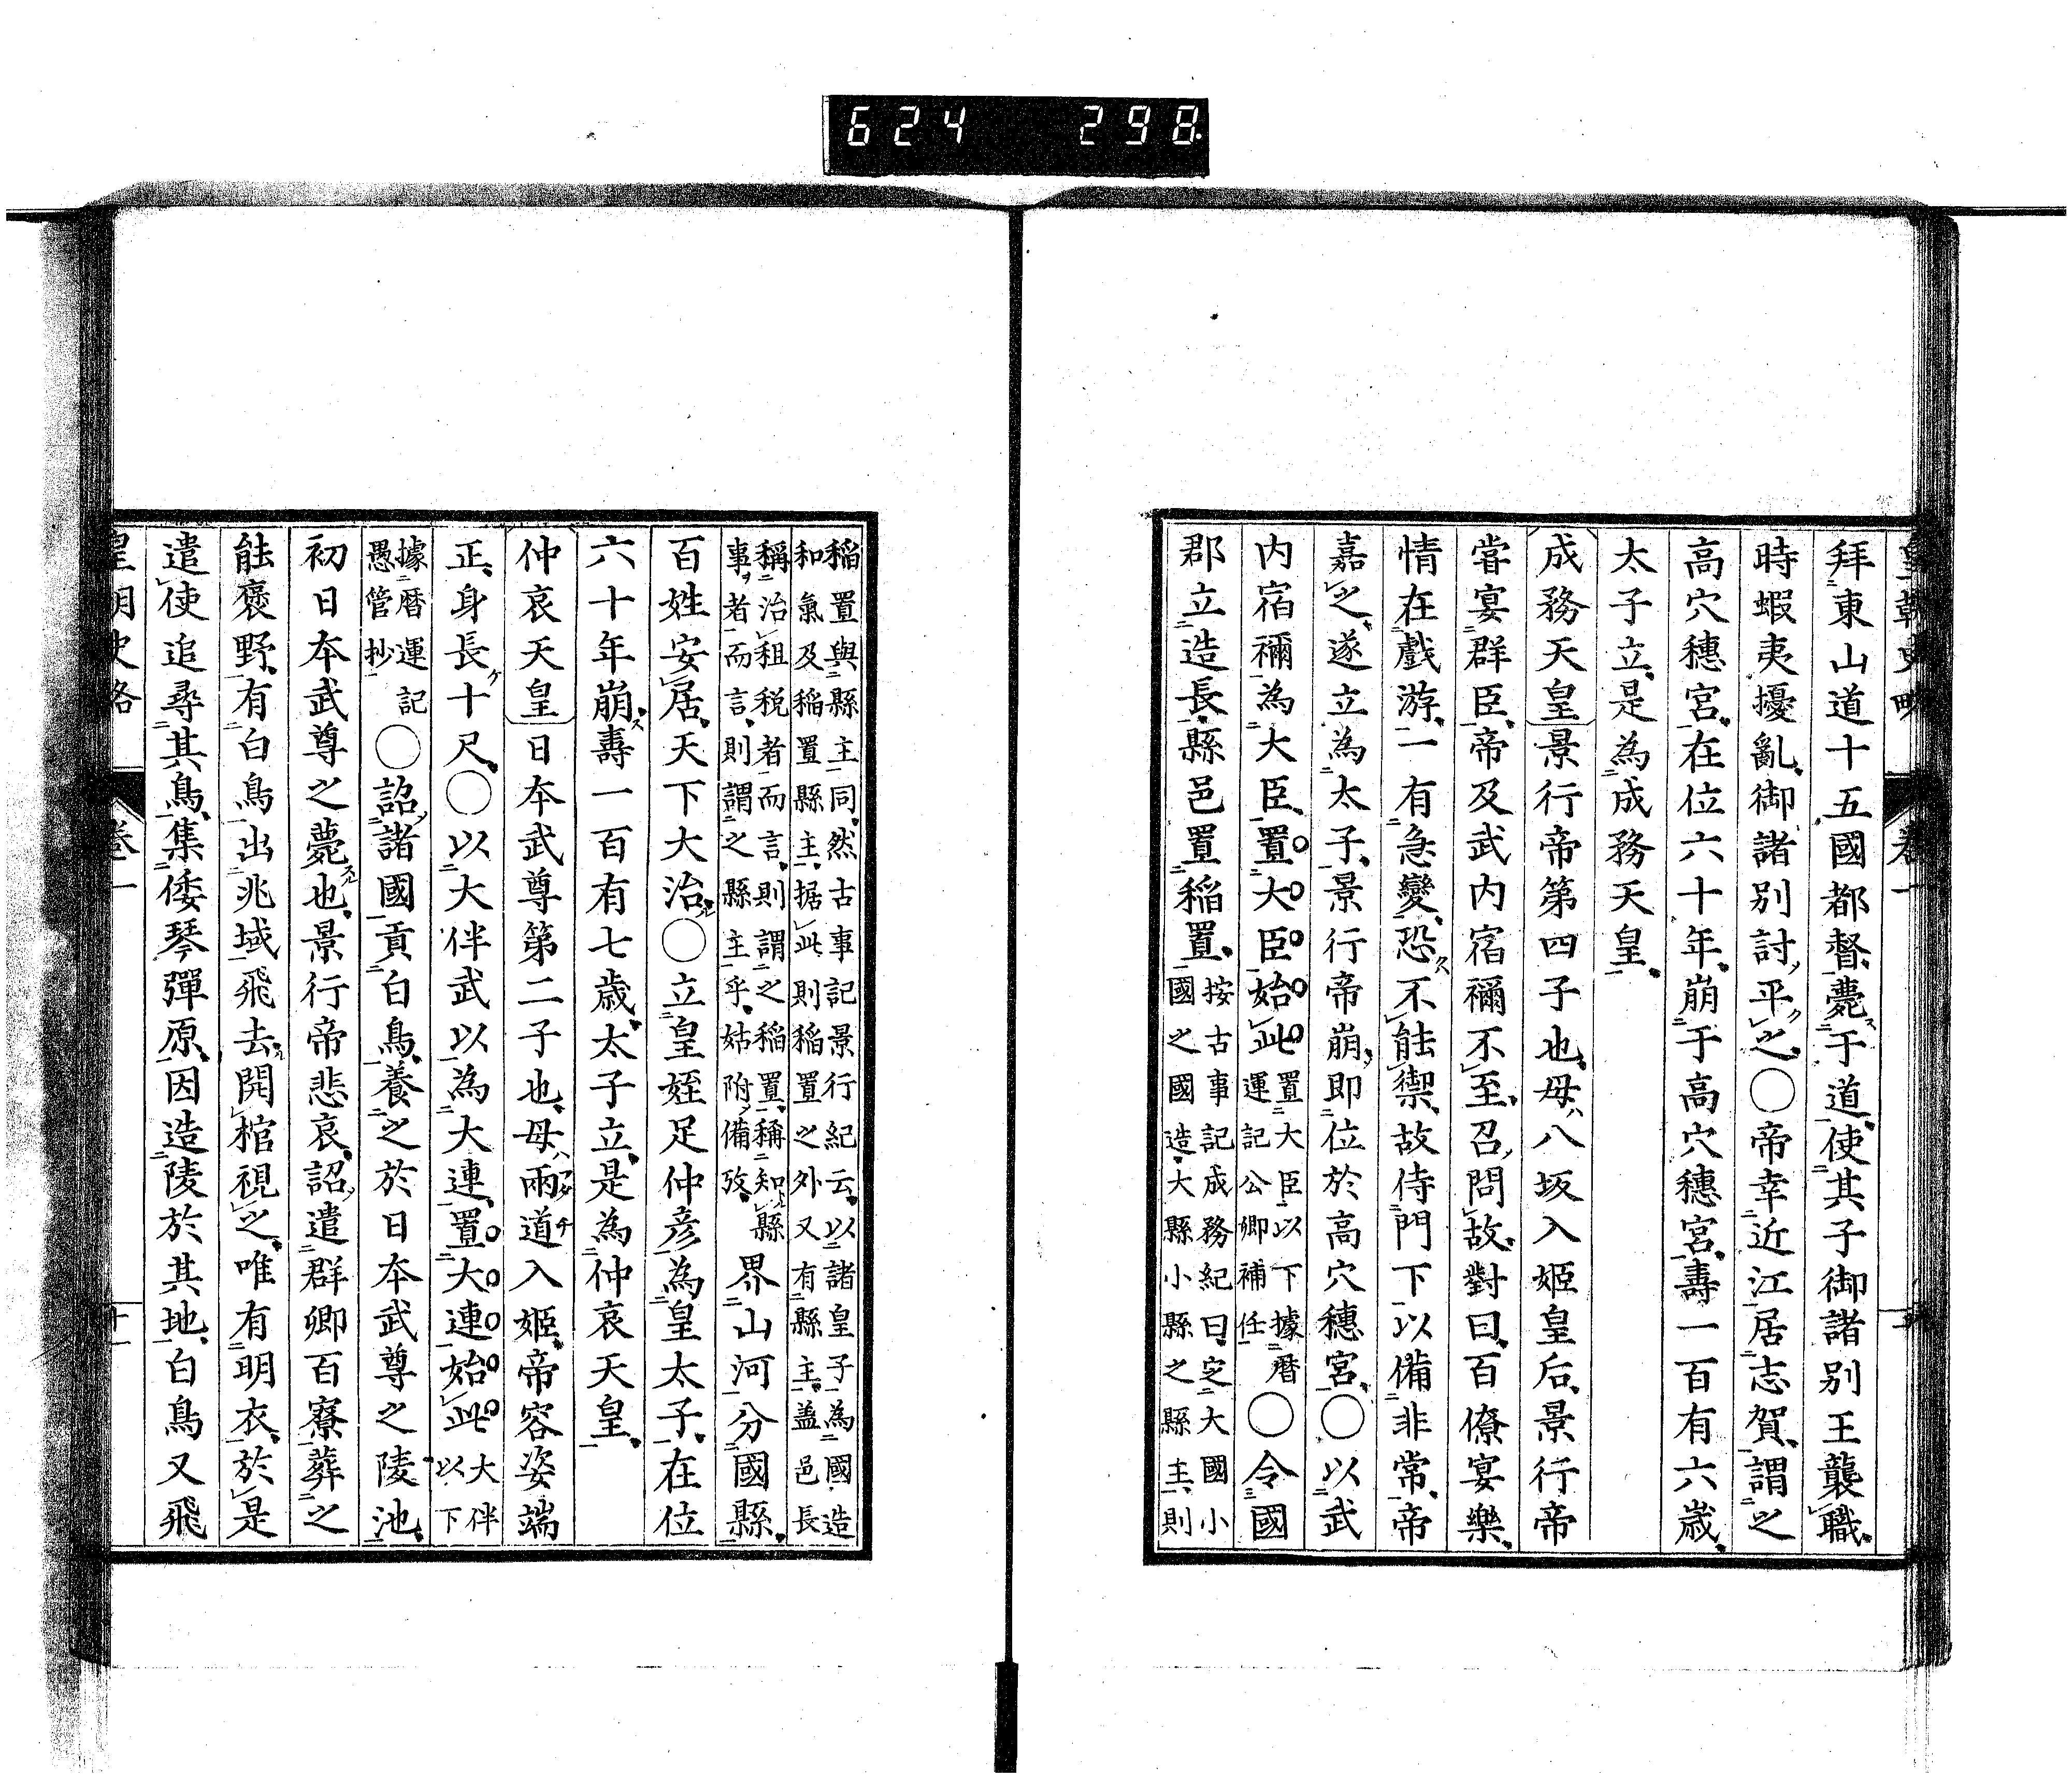 624 298
皇朝史略 卷一
拜東山道十五國都督薨于道使其子御諸別王襲職
時蝦夷擾亂御諸別討平之○帝幸近江居志賀謂之
高穴穗宮在位六十年崩于高穴穗宮壽一百有六歲
太子立是為成務天皇
成務天皇景行帝第四子也母八坂入姬皇后景行帝
嘗宴群臣帝及武内宿禰不至召問故對曰百僚宴樂
情在戲游一有急變恐不能禦故侍門下以備非常帝
嘉之遂立為太子景行帝崩即位於高穴穗宮○以武
内宿禰為大臣置大臣始此置大臣以下據曆運記公卿補任○令國
郡立造長縣邑置稻置按古事記成務紀曰定大國小國之國造大縣小縣之縣主則
稻置與縣主同然古事記景行紀云以諸皇子為國造
和氣及稻置縣主据此則稻置之外又有縣主盖邑長
稱治租税者而言則謂之稻置稱知縣事者而言則謂之縣主乎姑附備攷界山河分國縣
百姓安居天下大治○立皇姪足仲彦為皇太子在位
六十年崩壽一百有七歲太子立是為仲哀天皇
仲哀天皇日本武尊第二子也母兩道入姬帝容姿端
正身長十尺○以大伴武以為大連置大連始此大伴以下
據曆運記愚管抄○詔諸國貢白鳥養之於日本武尊之陵池
初日本武尊之薨也景行帝悲哀詔遣群卿百寮葬之
能褒野有白鳥出兆域飛去開棺視之唯有明衣於是
遣使追尋其鳥集倭琴彈原因造陵於其地白鳥又飛
皇朝史略 卷一 十一